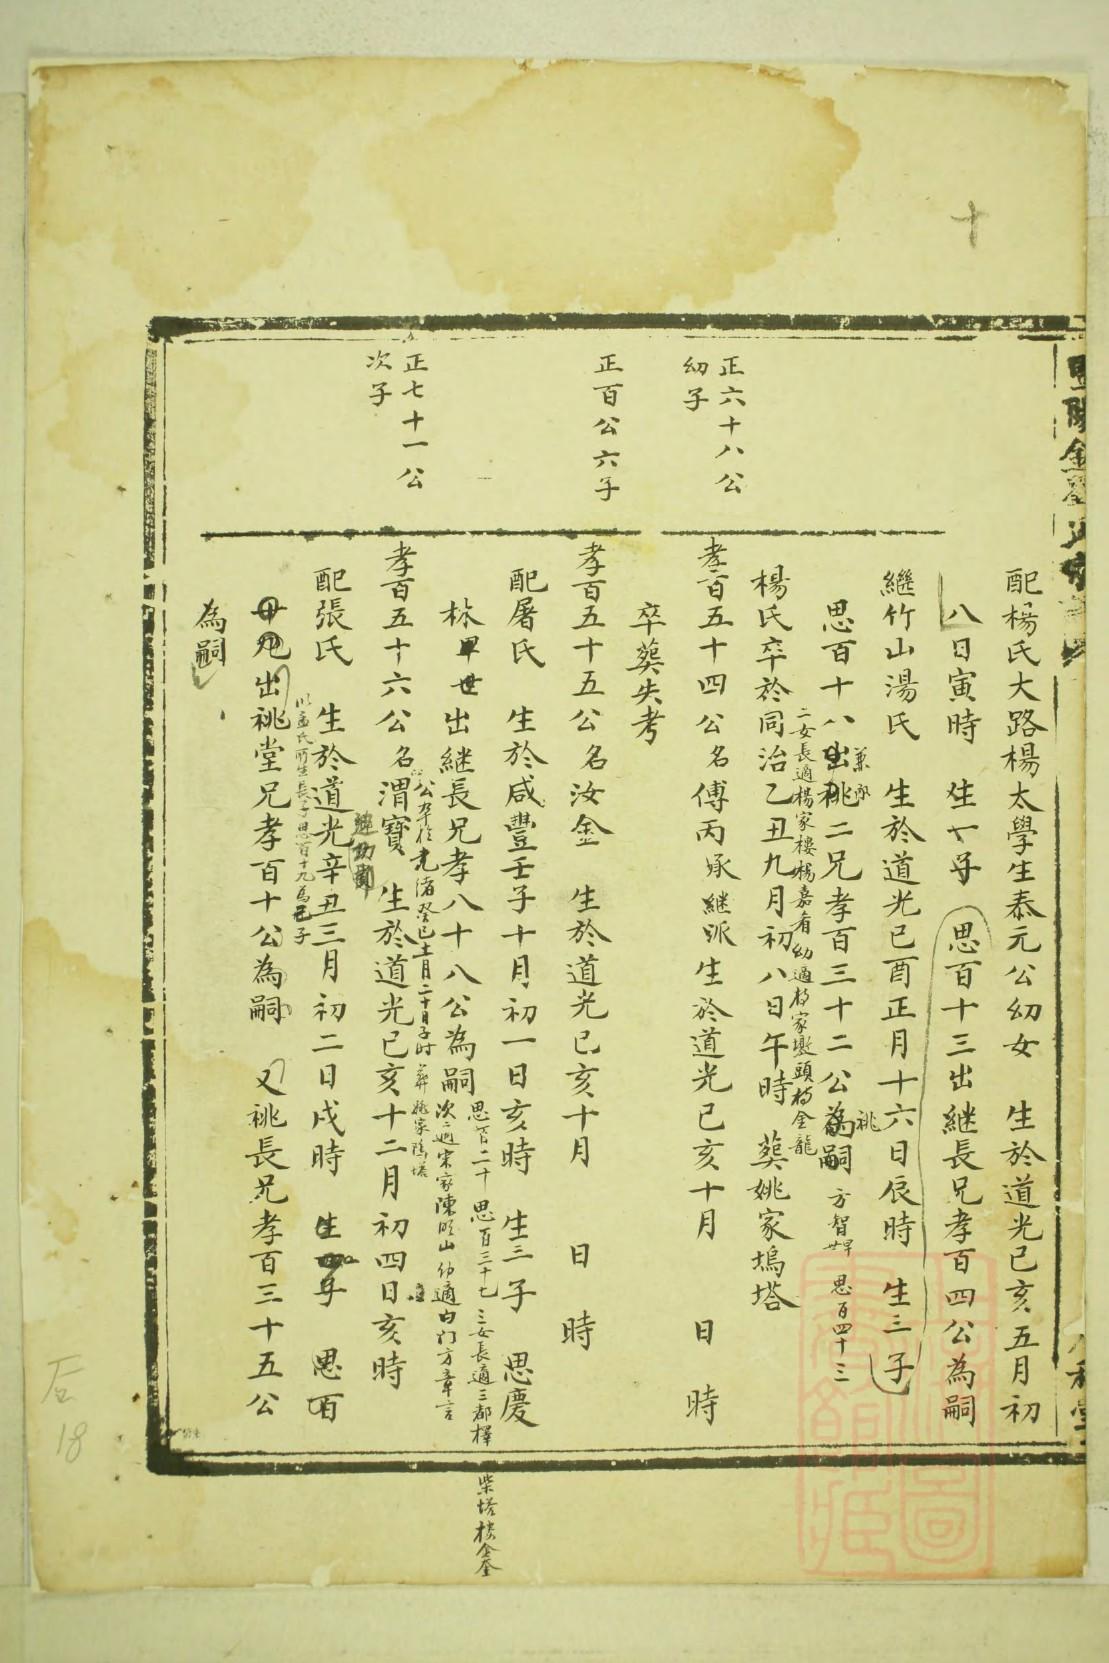 十
配楊氏大路楊太學生泰元公幼女　生於道光已亥五月初
八日寅時　生一子　思百十三出継長兄孝百四公為嗣
繼竹山湯氏　生於道光已酉正月十六日辰時　生三子
思百十八出祧二兄孝百三十二公為嗣　方智早世　思百四十三
兼祧
祧
二女長適楊家樓楊嘉看幼適楊家墩頭楊金龍
楊氏卒於同治乙丑九月初八日午時　葬姚家塢塔
正六十八公
幼子
孝百五十四公名傅丙承継派生於道光已亥十月　日　時
卒葬失考
正百公六子
孝百五十五公名汝金　生於道光已亥十月　日　時
配屠氏　生於咸豐壬子十月初一日亥時　生三子　思慶
出継長兄孝八十八公為嗣
思百二十　思百三十七　三女長適三都擇
柴塔楼金奎
次適宋家陳順山幼適白门方章言
正七十一公
次子
孝百五十六公名渭寶　生於道光已亥十二月初四日亥時
公卒於光緒癸巳十二月二十日子时　葬姚家隖塔
配張氏　生於道光辛丑三月初二日戌時　生　子　思百
氏所生長子思百十九為己子
出祧堂兄孝百十公為嗣　又祧長兄孝百三十五公
為嗣
后
18